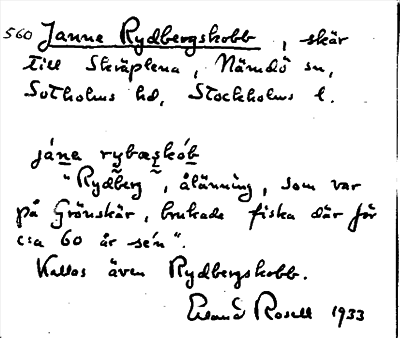 560 Janne Rydbergskobb, skär
till Skräplena, Nämdö sn,
Sotholms hd, Stockholms l.
jána rybæskób
"Rydberg, ålänning, som var
på Grönskär, brukade fiska där för
c:a 60 år se'n".
Kallas även Rydbergskobb.
Erland Rosell 1933